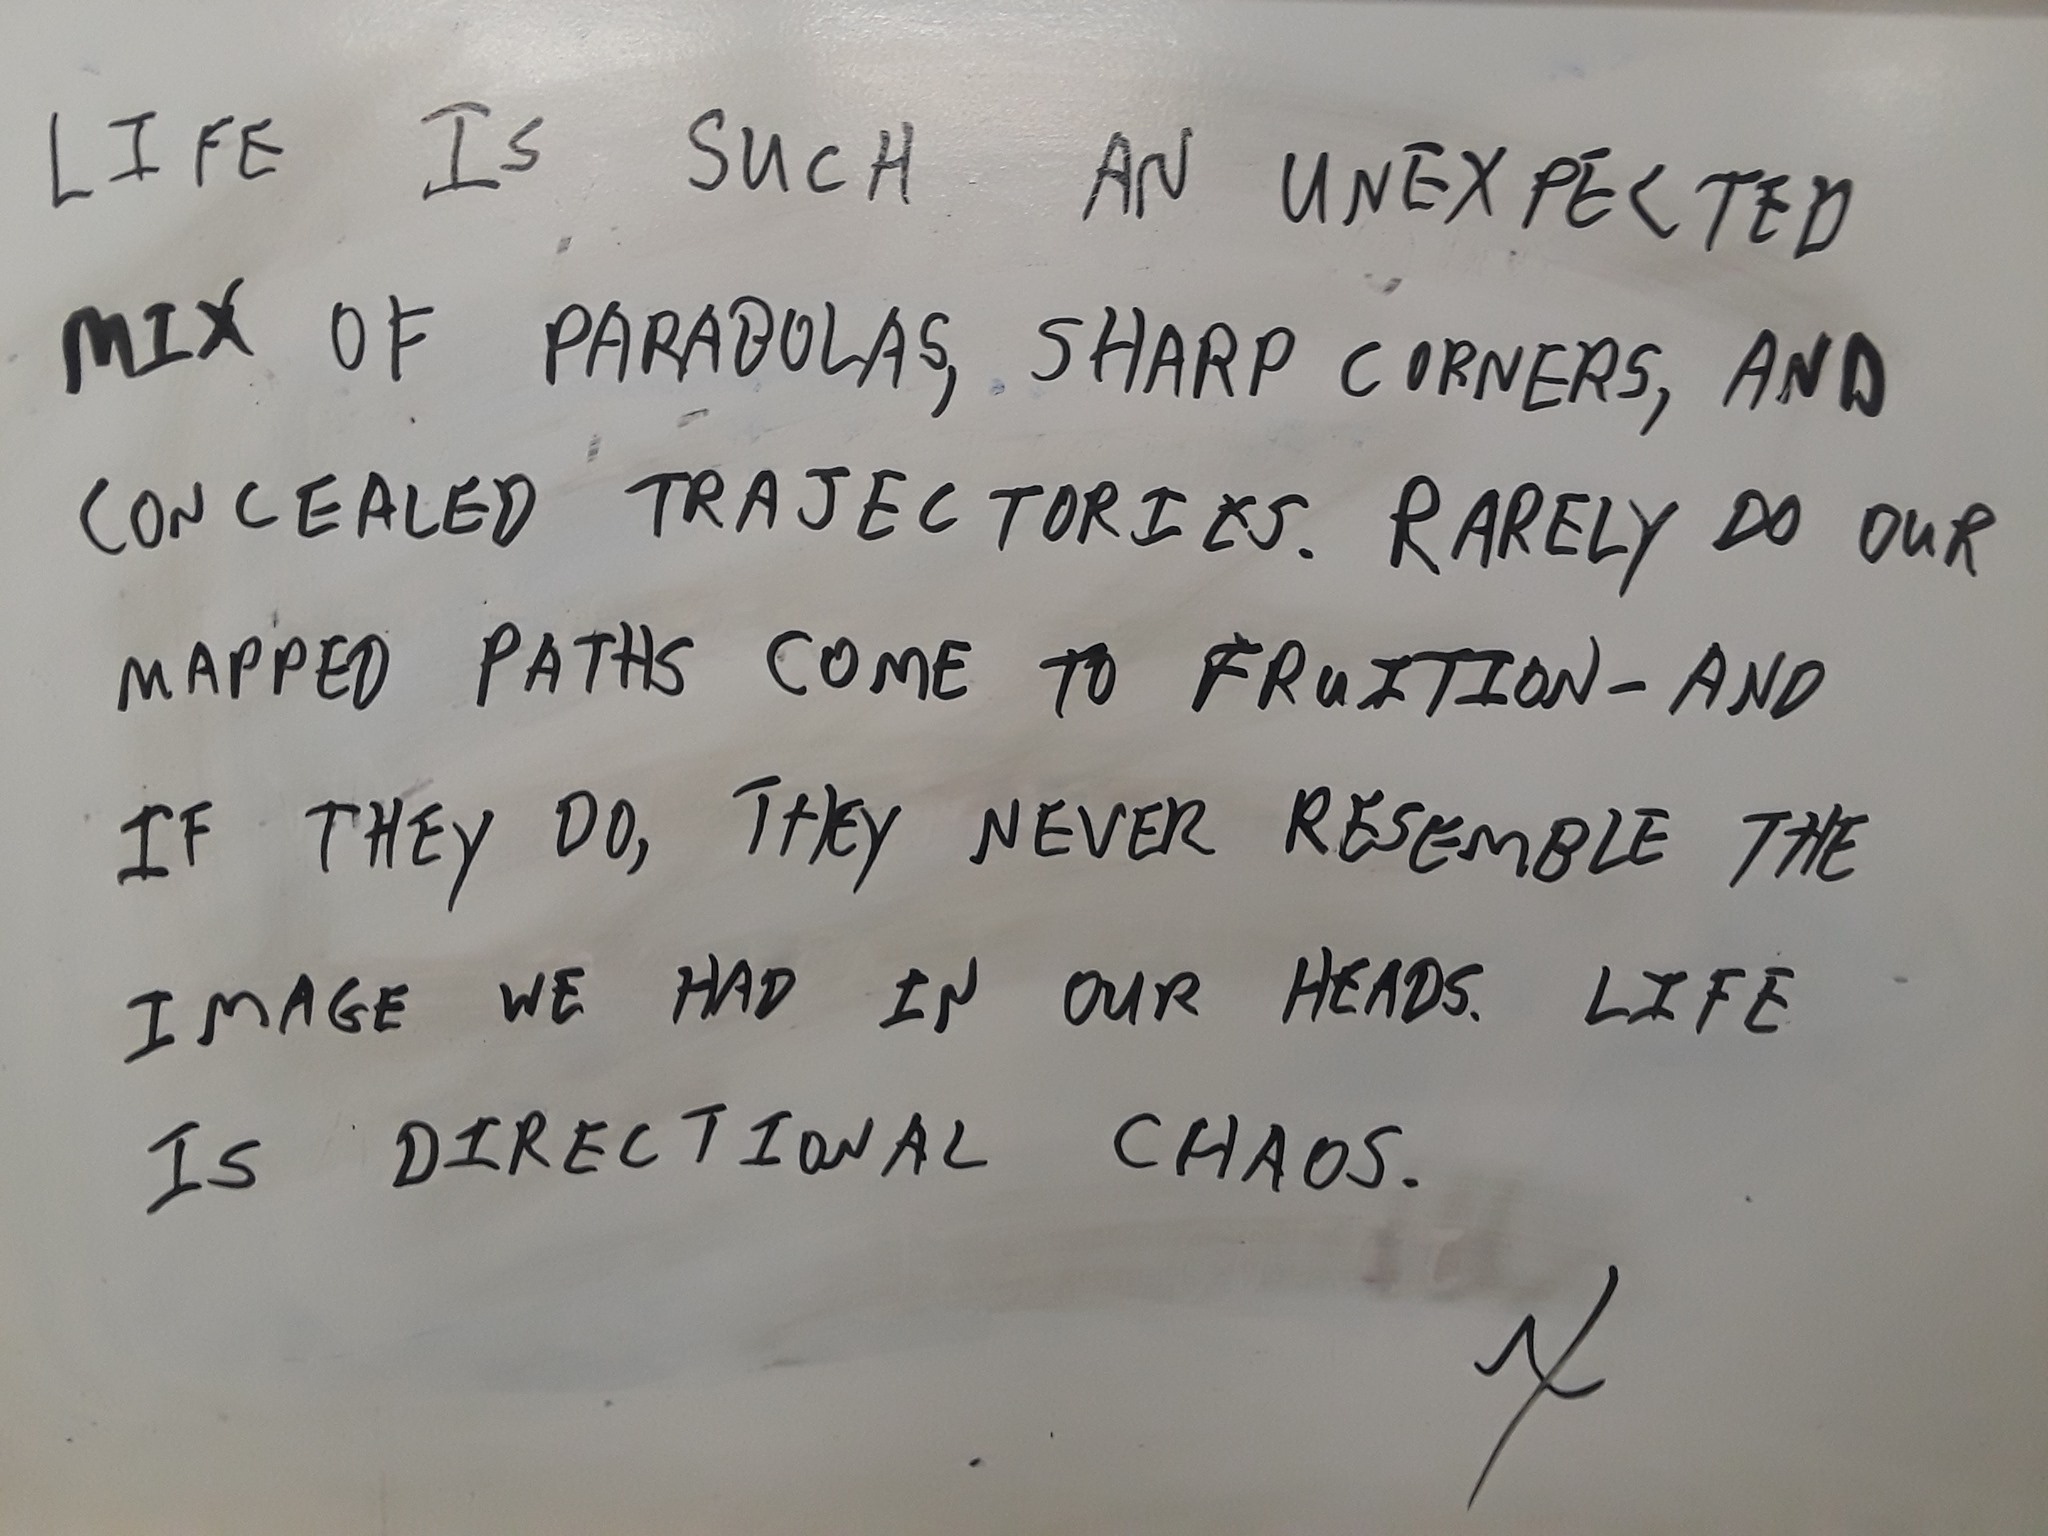 LIFE IS SUCH AN UNEXPECTED
MIX OF PARABOLAS, SHARP CORNERS, AND
CONCEALED TRAJECTORIES. RARELY DO OUR
MAPPED PATHS COME TO FRUITION- AND
IF THEY DO, THEY NEVER RESEMBLE THE
IMAGE WE HAD IN OUR HEADS. LIFE
IS DIRECTIONAL CHAOS.